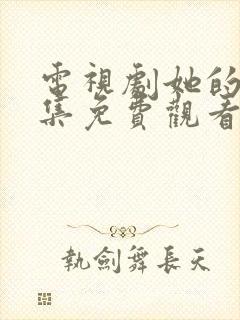 電視劇她的
集免費觀看
執劍舞長天